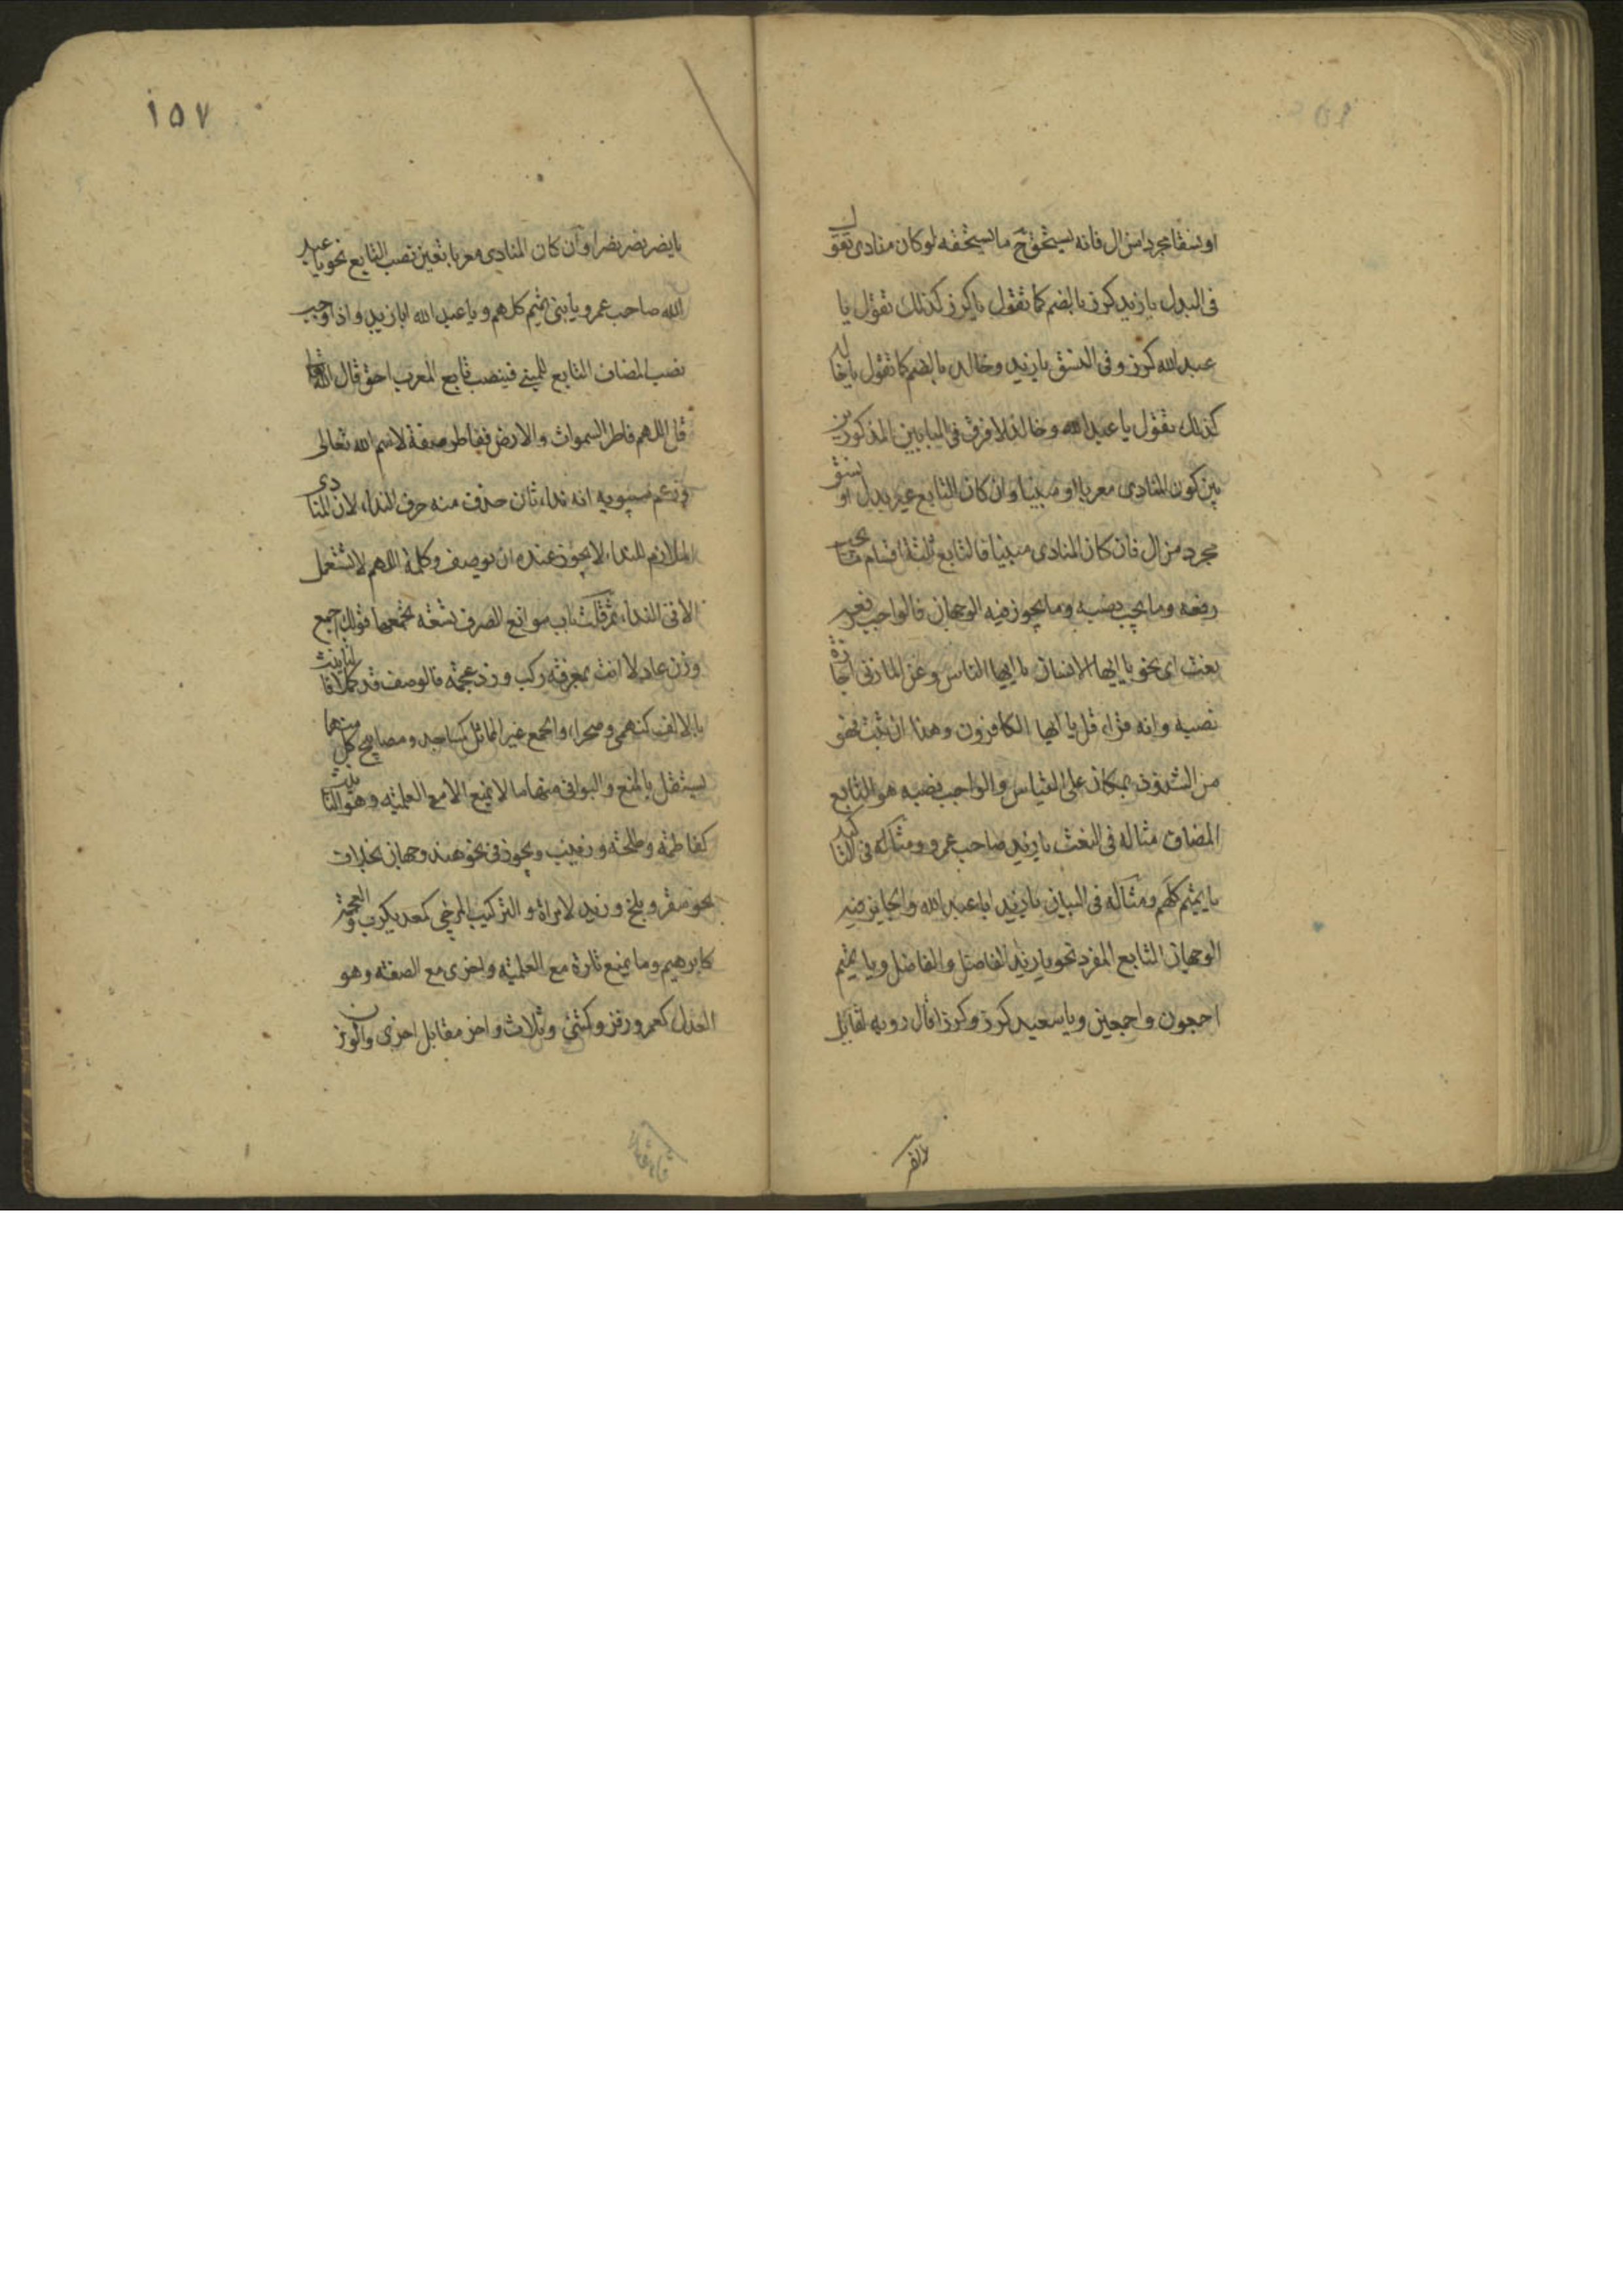 او نسقا مجردا من ال فانه يستحق ح ما يستحقه لو كان منادى تقول
فى البدل يا زيد كرز بالضم كما تقول يا كرز كذلك تقول يا
عبد الله كرز وفى النسق يا زيد وخالد بالضم كما تقول يا خالد
كذلك تقول يا عبد الله وخالد لا فرق فى البابين المذكورين
بين كون المنادى معربا او مبنيا وان كان التابع غير بدل او نسق
مجرد من ال فان كان المنادى مبنيا فالتابع ثلثة اقسام ما يجب
رفعه وما يجب نصبه وما يجوز فيه الوجهان فالواجب رفعه
نعت اى نحو يا ايها الانسان يا ايها الناس وعن المازنى اجازة
نصبه وانه قراء قل يا ايها الكافرون وهذا ان ثبت فهو
من الشذوذ بمكان على القياس والواجب نصبه هو التابع
المضاف مثاله فى النعت يا زيد صاحب عمرو ومثاله فى التاكيد
يا تميم كلهم ومثاله فى البيان يا زيد ابا عبد الله والجايز فيه
الوجهان التابع المفرد نحو يا زيد الفاضل والفاضل ويا تميم
اجمعون واجمعين ويا سعيد كرز وكرزا قال روبه لقايل
١٥٧
يا نصر نصر نصرا وان كان المنادى معربا تعين نصب التابع نحو يا عبد
الله صاحب عمرو يا بنى تميم كلهم ويا عبد الله ابا زيد واذا وجب
نصب المضاف التابع للمبنى فينصب تابع المعرب احق قال الله تعالى
قل اللهم فاطر السموات والارض ففاطر صفة لاسم الله تعالى
وزعم سيبويه انه نداء ثان حذف منه حرف النداء لان المنادى
الملازم للنداء لا يجوز عنده ان يوصف وكلمة اللهم لا تستعمل
الا فى النداء ثم قلت باب موانع الصرف تسعة يجمعها قولك اجمع
وزن عادلا انث بمعرفة ركب وزد عجمة فالوصف قد كملا فالتانيث
بالالف كبهمى وصحراء والجمع غير المماثل كمساجد ومصابيح كل منهما
يستقل بالمنع والبواقى منها ما لا يمنع الا مع العلمية وهو التانيث
كفاطمة وطلحة وزينب ويجوز فى نحو هند وجهان بخلاف
نحو سقر وبلخ وزيد لامراة والتركيب المزجى كمعديكرب والعجمة
كابرهيم وما يمنع تارة مع العلمية واخرى مع الصفة وهو
العدل كعمر وزفر وكمثنى وثلاث واخر مقابل اخرى والوزن